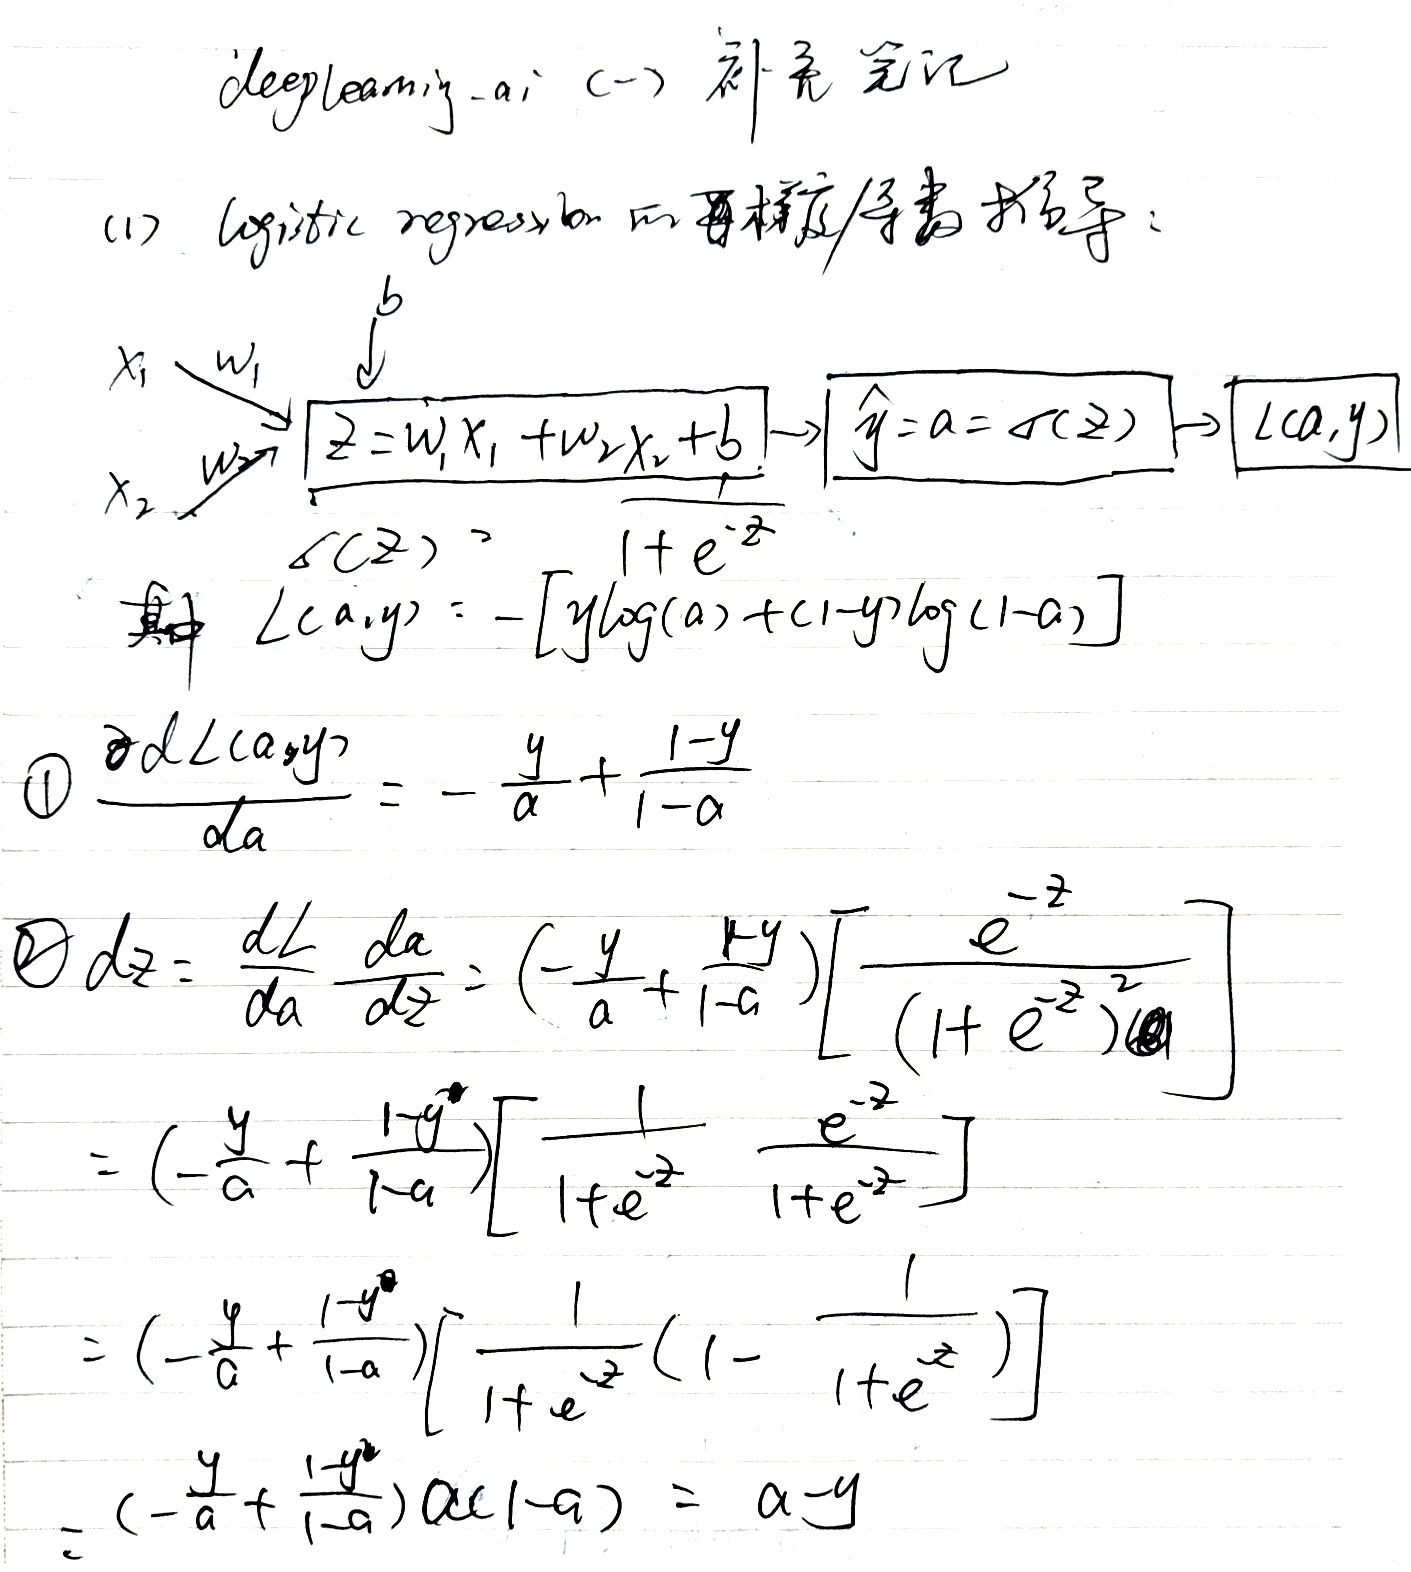 deeplearning.ai (一) 补充笔记
(1) logistic regression 的 梯度/导数 推导:
b
x₁ w₁
x₂ w₂
z = w₁x₁ + w₂x₂ + b → ŷ = a = σ(z) → L(a,y)
σ(z) = 1/(1+e^{-z})
其中 L(a,y) = -[ylog(a) + (1-y)log(1-a)]
① dL(a,y)/da = -y/a + (1-y)/(1-a)
② dz = dL/da da/dz = (-y/a + (1-y)/(1-a)) [e^{-z}/(1+e^{-z})²]
= (-y/a + (1-y)/(1-a)) [1/(1+e^{-z}) e^{-z}/(1+e^{-z})]
= (-y/a + (1-y)/(1-a)) [1/(1+e^{-z}) (1 - 1/(1+e^{-z}))]
= (-y/a + (1-y)/(1-a)) a(1-a) = a-y